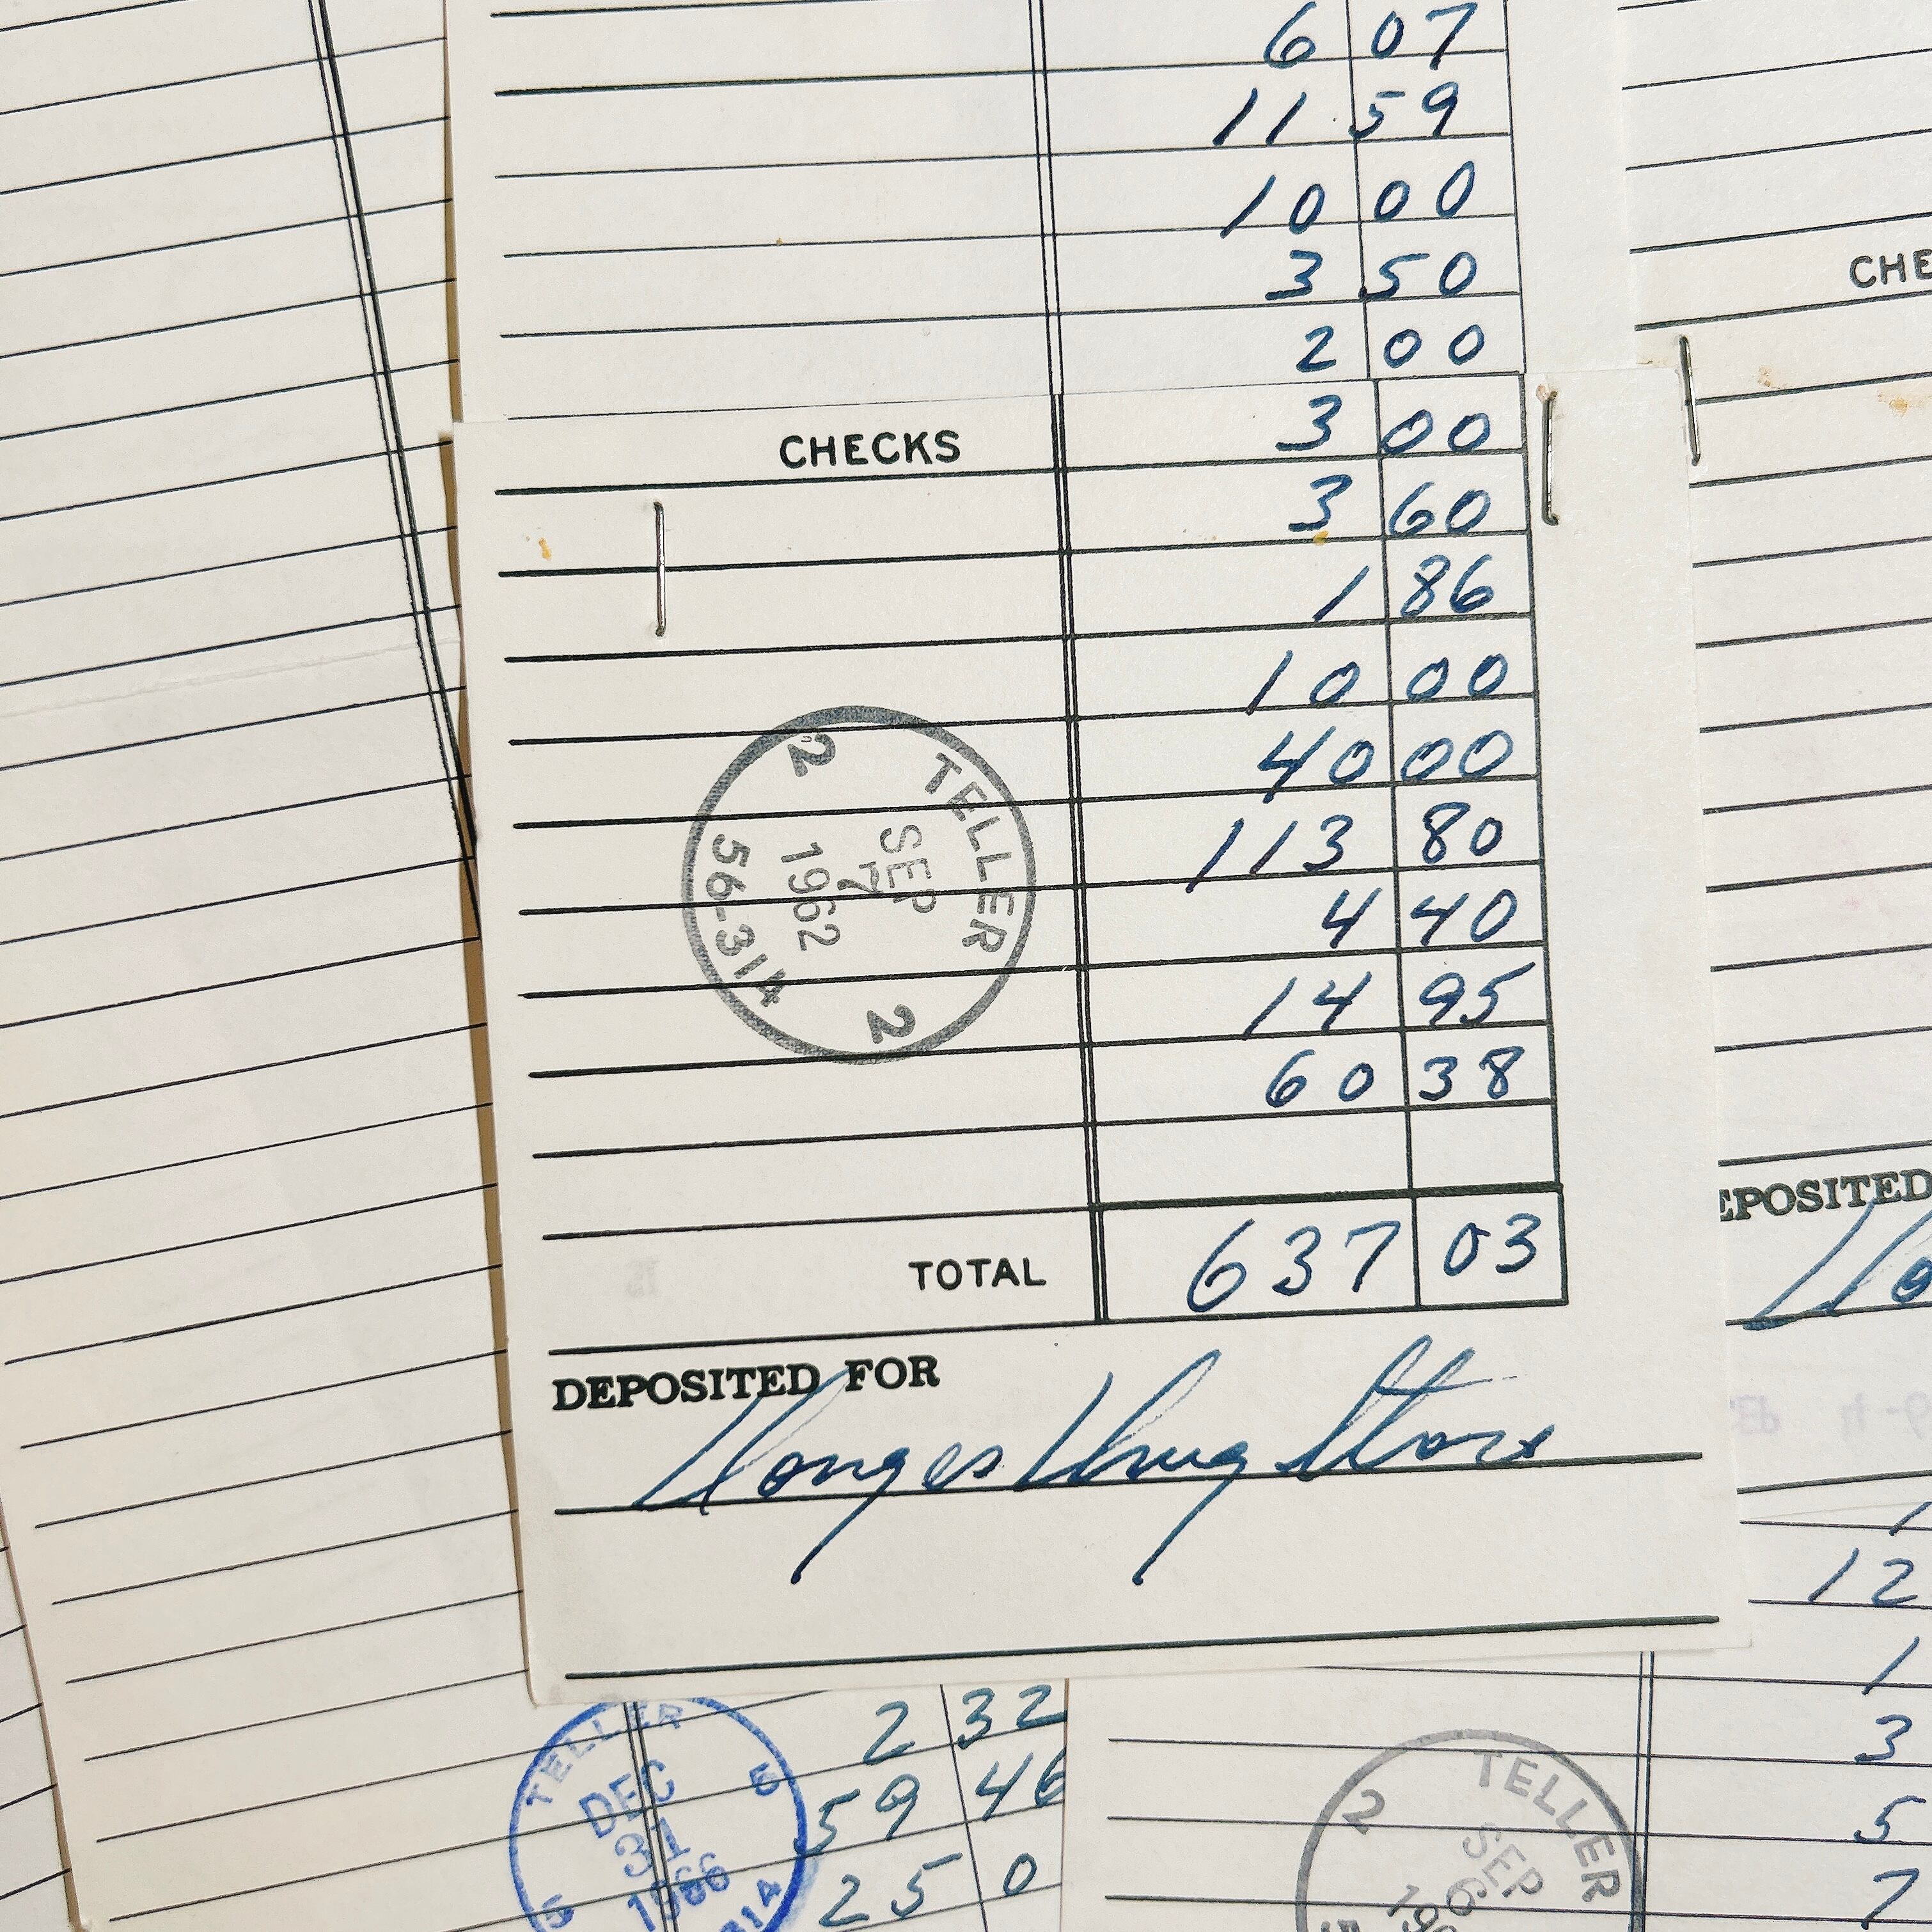 6 07
11 59
10 00
3 50
2 00
CHECKS 3 00
3 60
1 86
10 00
40 00
113 80
4 40
14 95
60 38
TOTAL 637 03
DEPOSITED FOR
Drug Store
TELLER
2 2
SEP
7
1962
56-314
CHE
EPOSITED
12
1
3
5
7
2 32
59 46
25 0
TELLER
DEC
31
1966
5 5
314
TELLER
2
SEP
6